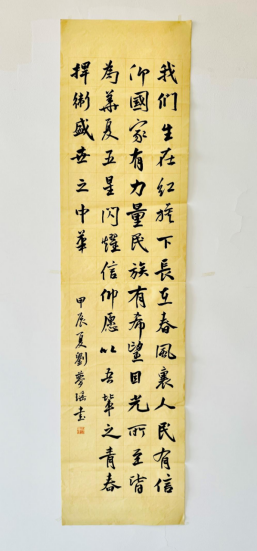 我们生在红旗下長在春風裏人民有信
仰國家有力量民族有希望目光所至皆
為華夏五星閃耀信仰愿以吾輩之青春
捍衛盛世之中華
甲辰夏劉夢瑶書